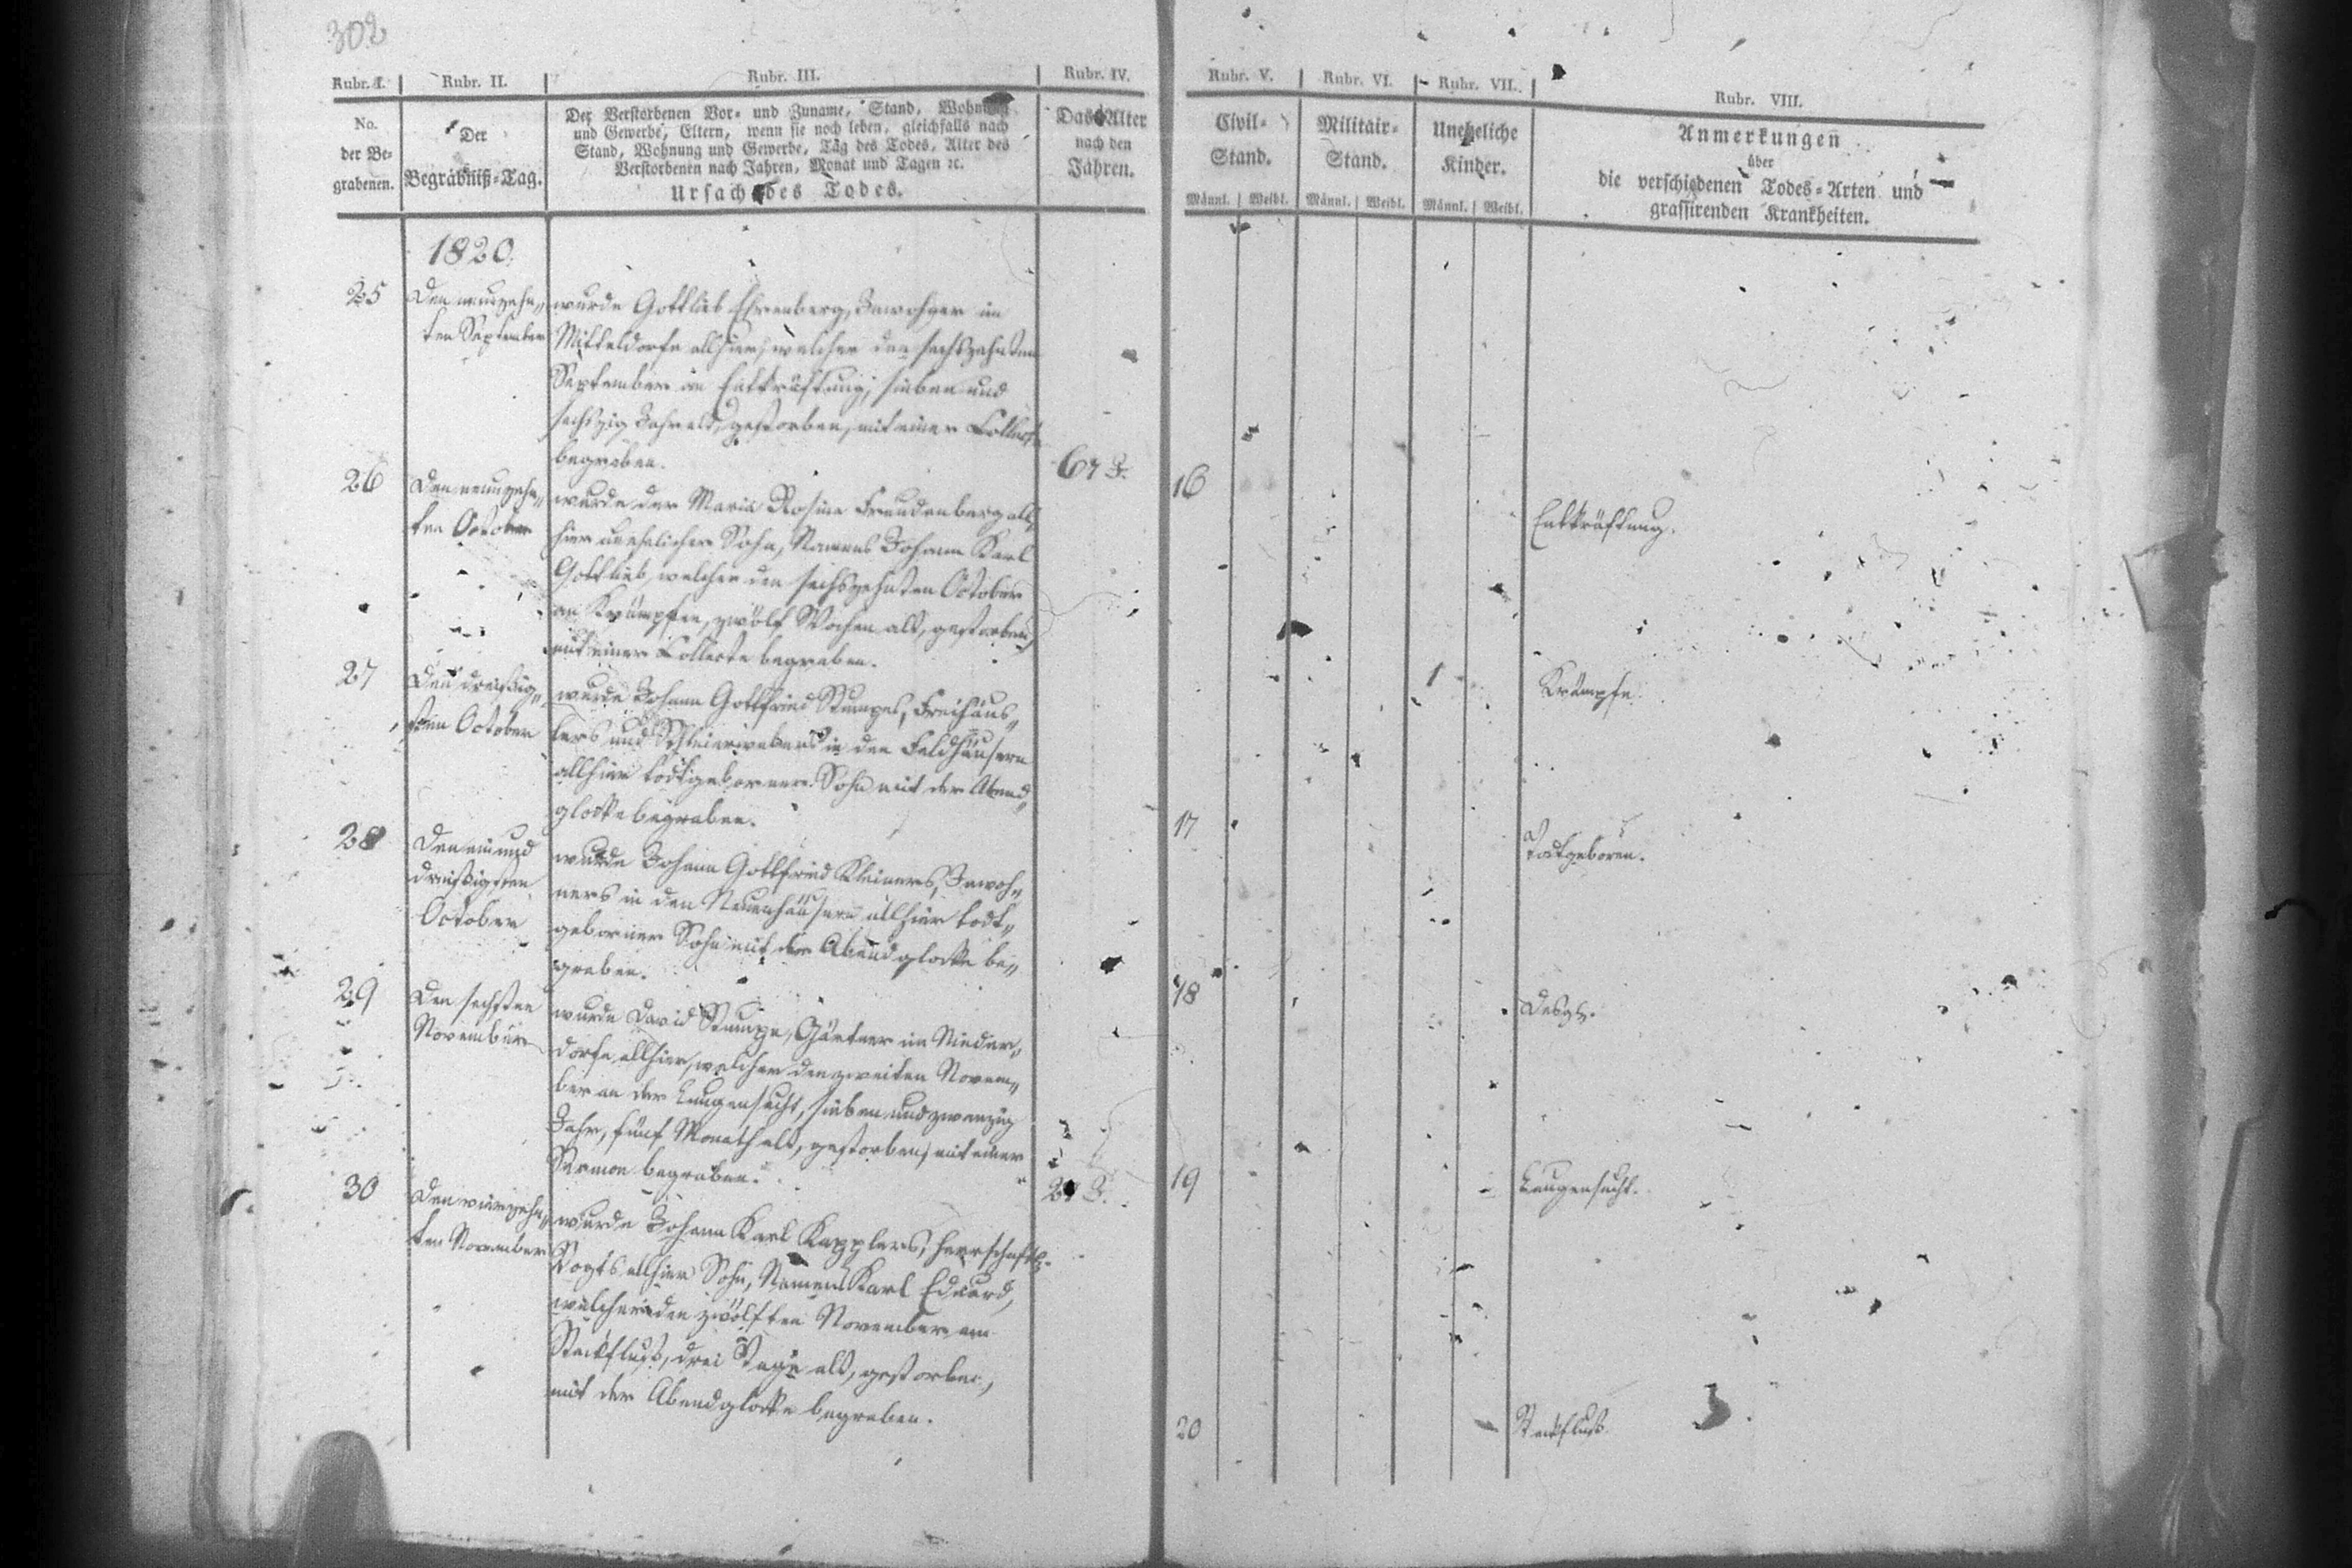 302
Rubr. I.
Rubr. II.
Rubr. III.
Rubr. IV.
Rubr. V.
Rubr. VI.
Rubr. VII.
Rubr. VIII.
No.
der Be-
grabenen.
Der
Begräbniß-Tag.
Der Verstorbenen Vor- und Zuname, Stand, Wohnung
und Gewerbe, Eltern, wenn sie noch leben, gleichfalls nach
Stand, Wohnung und Gewerbe, Tag des Todes, Alter des
Verstorbenen nach Jahren, Monat und Tagen ꝛc.
Ursach des Todes.
Das Alter
nach den
Jahren.
Civil-
Stand.
Militair-
Stand.
Uneheliche
Kinder.
Männl. Weibl. Männl. Weibl. Männl. Weibl.
Anmerkungen
über
die verschiedenen Todes-Arten und
grassirenden Krankheiten.
1820.
25
Den neunzehn-
ten September
wurde Gottlieb Ehrenberg, Inwohner im
Mitteldorfe allhier, welcher den sechszehnten
September an Entkräftung, sieben und
sechszig Jahr alt, gestorben, mit einer Collecte
begraben.
67 J.
16
Entkräftung.
26
Den neunzehn-
ten October
wurde der Maria Rosina Freudenberg all-
hier unehelicher Sohn, Namens Johann Karl
Gottlieb, welcher den sechszehnten October
an Krämpfen, zwölf Wochen alt, gestorben,
mit einer Collecte begraben.
1
Krämpfe.
27
Den dreißig-
sten October
wurde Johann Gottfried Stumpes, Freihäus-
lers und Schleierwebers in den Feldhäusern
allhier todtgeborner Sohn mit der Abend-
glocke begraben.
17
Todtgeboren.
28
Den ein und
dreißigsten
October
wurde Johann Gottfried Kleiners, Inwoh-
ners in den Neuenhäusern allhier todt-
geborner Sohn mit der Abendglocke be-
graben.
18
Desgl.
29
Den sechsten
November
wurde David Stumpe, Gärtner im Nieder-
dorfe allhier, welcher den zweiten Novem-
ber an der Lungensucht, sieben und zwanzig
Jahr, fünf Monath alt, gestorben, mit einer
Sermon begraben.
27 J.
19
Lungensucht.
30
Den vierzehn-
ten November
wurde Johann Karl Kapplers, herrschaftl.
Vogts allhier Sohn, Namens Karl Eduard,
welcher den zwölften November am
Steckfluß, drei Tage alt, gestorben,
mit der Abendglocke begraben.
20
Steckfluß